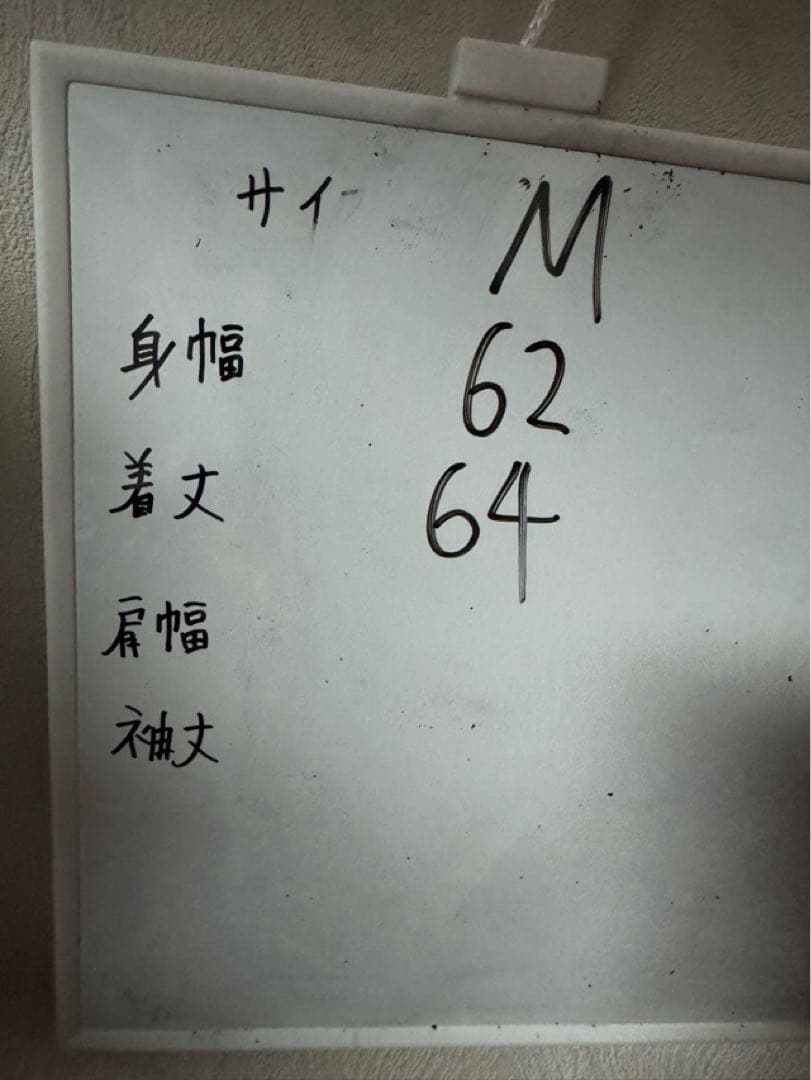 サイ M
身幅 62
着丈 64
肩幅
袖丈